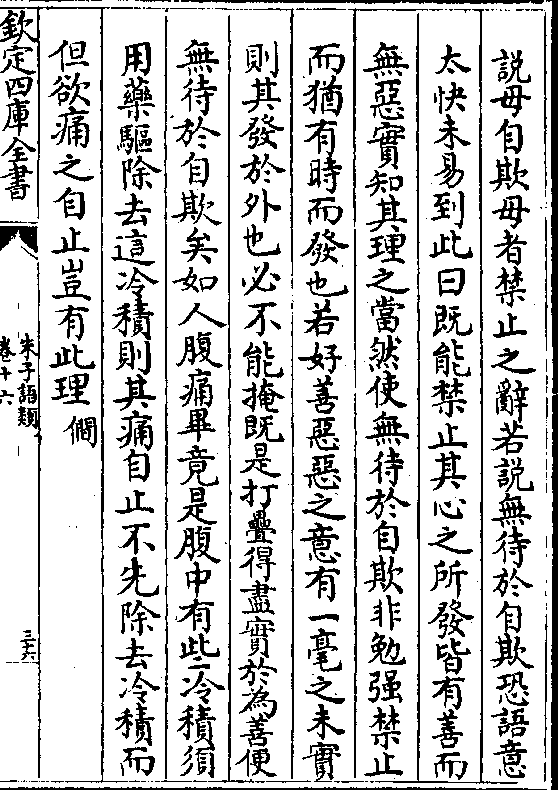 説毋自欺毋者禁止之辭若説無待於自欺恐語意
太快未易到此曰既能禁止其心之所發皆有善而
無惡實知其理之當然使無待於自欺非勉强禁止
而猶有時而發也若好善惡惡之意有一毫之未實
則其發於外也必不能掩既是打疊得盡實於為善便
無待於自欺矣如人腹痛畢竟是腹中有些冷積須
用藥驅除去這冷積則其痛自止不先除去冷積而
但欲痛之自止豈有此理 僩
欽定四庫全書
朱子語類
卷十六
三六